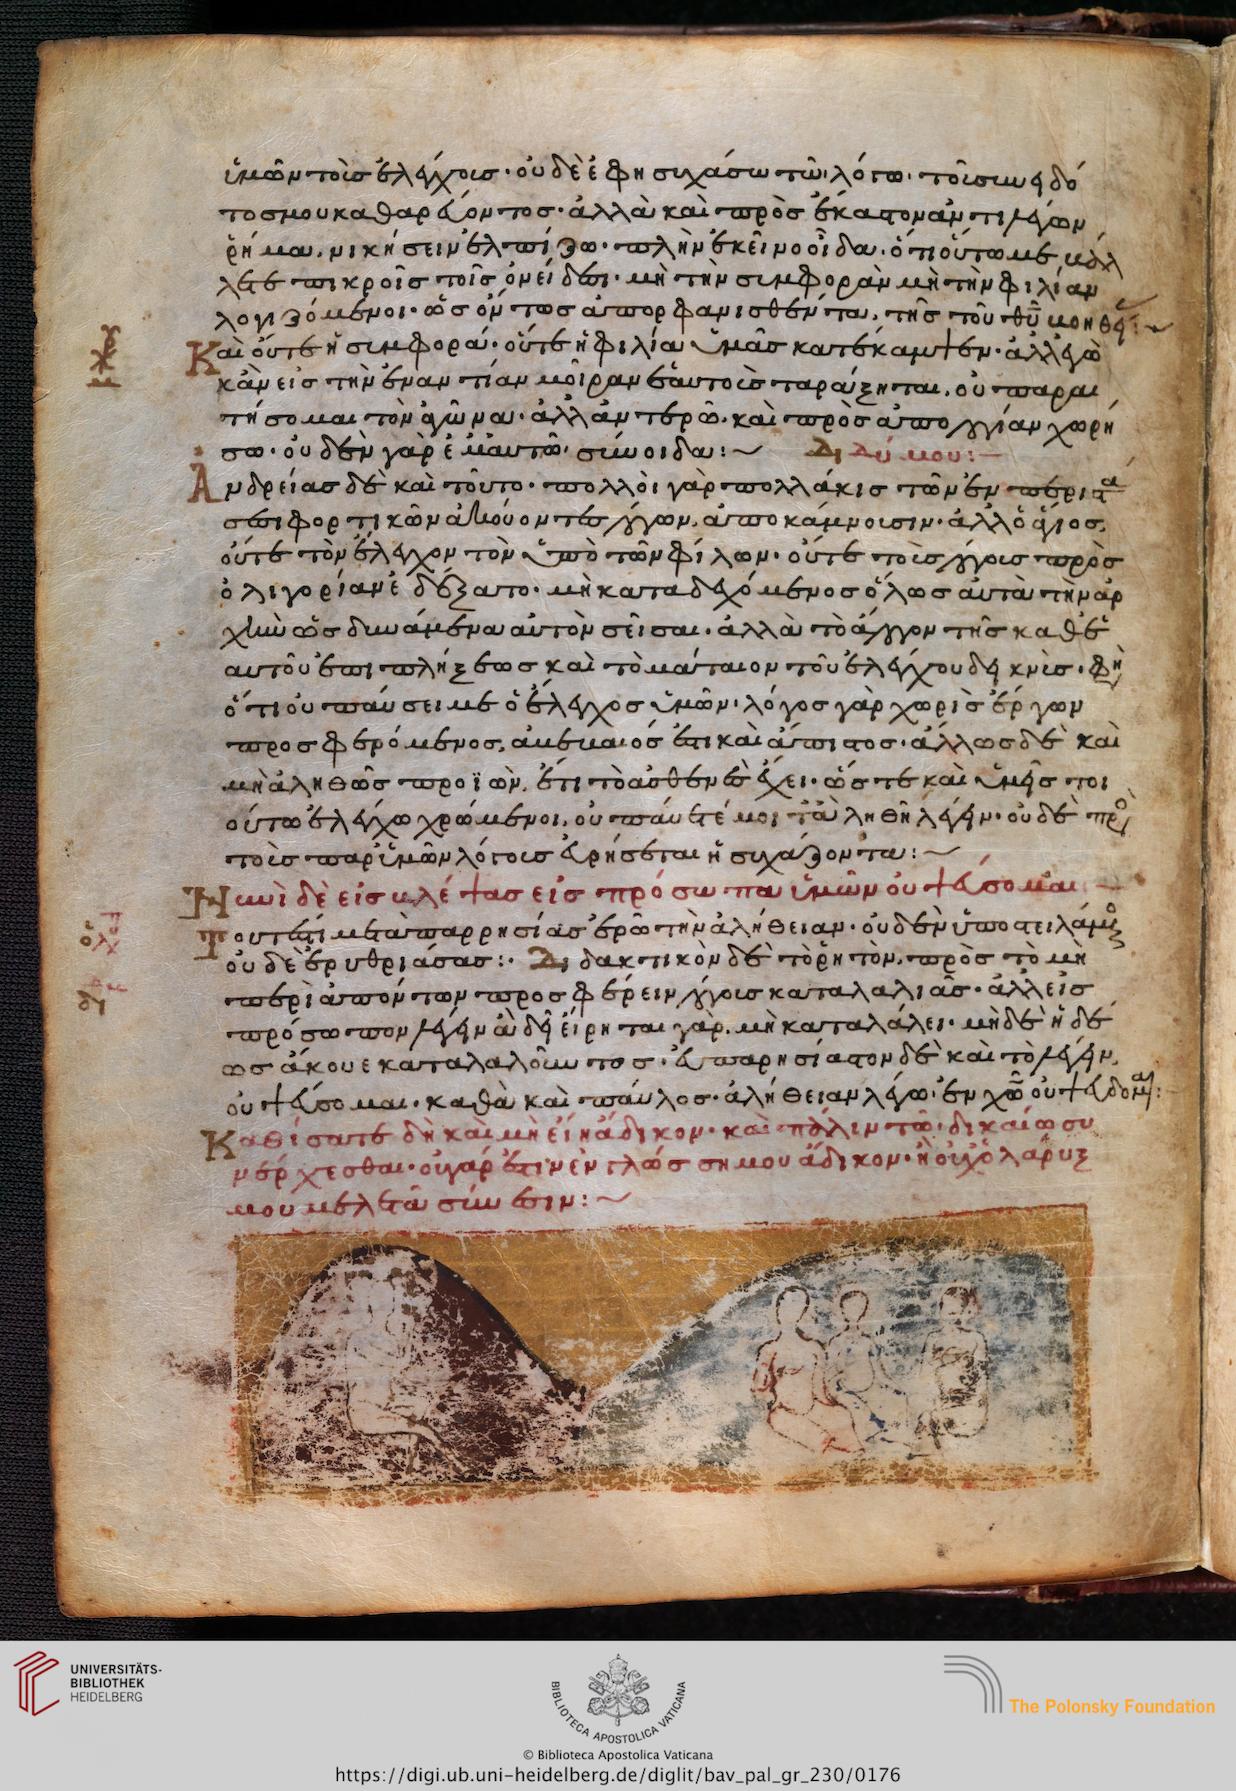 ὑμῶν τοῖς ἐλέγχοις· οὐδὲ ἐφησυχάσω τῷ λόγῳ· τοῖς
τος μου καθαρεύοντος· ἀλλὰ καὶ πρὸς ἕκαστον ἀντιλέγων
ῥῆμα, νικήσειν ἐλπίζω· πλὴν ἐκεῖνο οἶδα· ὅτι οὕτω με
πικροῖς τοῖς ὀνείδεσι· μὴ τὴν συμφορὰν μὴ τὴν φιλίαν
λογιζόμενοι· ὡς ὄντως ἀπορφανισθέντα, τῆς τοῦ θῦ
Καὶ οὔτε ἡ συμφορά· οὔτε ἡ φιλία ὑμᾶς κατέκαμψεν· ἀλλ' ἐγὼ
κἂν εἰς τὴν ἐναντίαν μοῖραν ἑαυτοὺς παράξηται, οὐ παραι
τήσομαι τὸν ἀγῶνα· ἀλλ' ἀντερῶ· καὶ πρὸς ἀπολογίαν χωρή
σω· οὐδὲν γὰρ ἐμαυτῷ σύνοιδα:~ Διδύμου:~
Ἀνδρείας δὲ καὶ τοῦτο· πολλοὶ γὰρ πολλάκις τῶν ἐν
φορτικῶν ἀκούοντες λόγων, ἀποκάμνουσιν· ἀλλ' ὁ ἅγιος,
οὔτε τὸν ἔλεγχον τὸν ὑπὸ τῶν φίλων· οὔτε τοῖς λόγοις πρὸς
ὀλιγορίαν ἐδέξατο· μὴ καταδεχόμενος ὅλως αὐτὰ τὴν ἀρ
χὴν ὡς δυνάμενα αὐτὸν σεῖσαι· ἀλλὰ τὸ τῆς καθ' ἑ
αυτοῦ ἐπιπλήξεως καὶ τὸ μάταιον τοῦ ἐλέγχου δεικνὺς· φη
ὅτι οὐ παύσει με ὁ ἔλεγχος ὑμῶν· λόγος γὰρ χωρὶς ἔργων
προσφερόμενος, ἀβέβαιός ἐστι καὶ ἄπιστος· ἄλλως δὲ καὶ
μὴ ἀληθῶς προϊὼν, ἔτι τὸ ἀσθενὲς ἔχει· ὥστε καὶ ὑμεῖς τοι
ούτῳ ἐλέγχῳ χρώμενοι, οὐ παύσετέ μοι τἀληθῆ λέγειν· οὐδὲ πρὸ
τοὺς παρ' ὑμῶν λόγους εὑρήσεται ἡσυχάζοντα:~
Νυνὶ δὲ εἰσβλέψας εἰς πρόσωπα ὑμῶν οὐ ψεύσομαι
Τουτέστι μετὰ παρρησίας ἐρῶ τὴν ἀλήθειαν· οὐδὲν ὑποστειλάμε
οὐδὲ ἐρυθριάσας:· Διδακτικὸν δὲ τὸ ῥητὸν, πρὸς τὸ μὴ
περὶ ἀπόντων προσφέρειν λόγοις καταλαλιᾶς· ἀλλ' εἰς
πρόσωπον λέγειν ἃ δεῖ εἴρηται γὰρ, μὴ καταλάλει· μηδὲ ἡδέ
ως ἄκουε καταλαλοῦντος· εὐπαρησίαστον δὲ καὶ τὸ λέγειν,
οὐ ψεύσομαι· καθὰ καὶ παῦλος· ἀλήθειαν λέγω ἐν χῶ οὐ ψεύδομαι:
Καθίσατε δὴ καὶ μὴ εἴη ἄδικον· καὶ πάλιν τῷ δικαίῳ συ
νέρχεσθαι· οὐ γάρ ἐστιν ἐν γλώσσῃ μου ἄδικον· ἢ οὐχ ὁ λάρυξ
μου μελετᾷ σύνεσιν:~
UNIVERSITÄTS-
BIBLIOTHEK
HEIDELBERG
BIBLIOTECA APOSTOLICA VATICANA
The Polonsky Foundation
© Biblioteca Apostolica Vaticana
https://digi.ub.uni-heidelberg.de/diglit/bav_pal_gr_230/0176